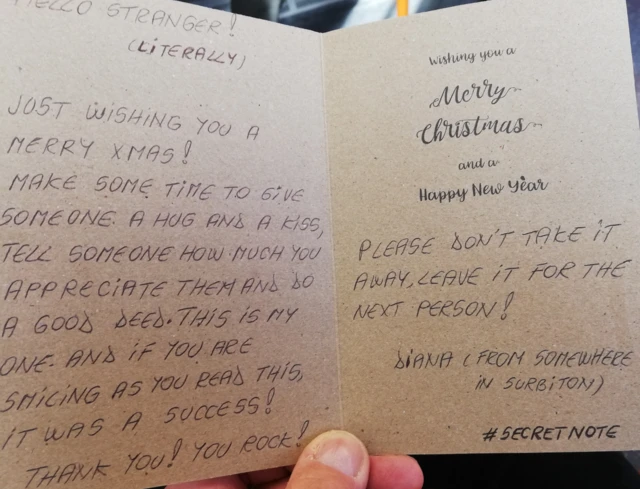 HELLO STRANGER!
(LITERALLY)
JUST WISHING YOU A
MERRY XMAS!
MAKE SOME TIME TO GIVE
SOMEONE A HUG AND A KISS,
TELL SOMEONE HOW MUCH YOU
APPRECIATE THEM AND DO
A GOOD DEED. THIS IS MY
ONE. AND IF YOU ARE
SMILING AS YOU READ THIS,
IT WAS A SUCCESS!
THANK YOU! YOU ROCK!
wishing you a
Merry
Christmas
and a
Happy New Year
PLEASE DON'T TAKE IT
AWAY, LEAVE IT FOR THE
NEXT PERSON!
DIANA (FROM SOMEWHERE
IN SURBITON)
#SECRETNOTE